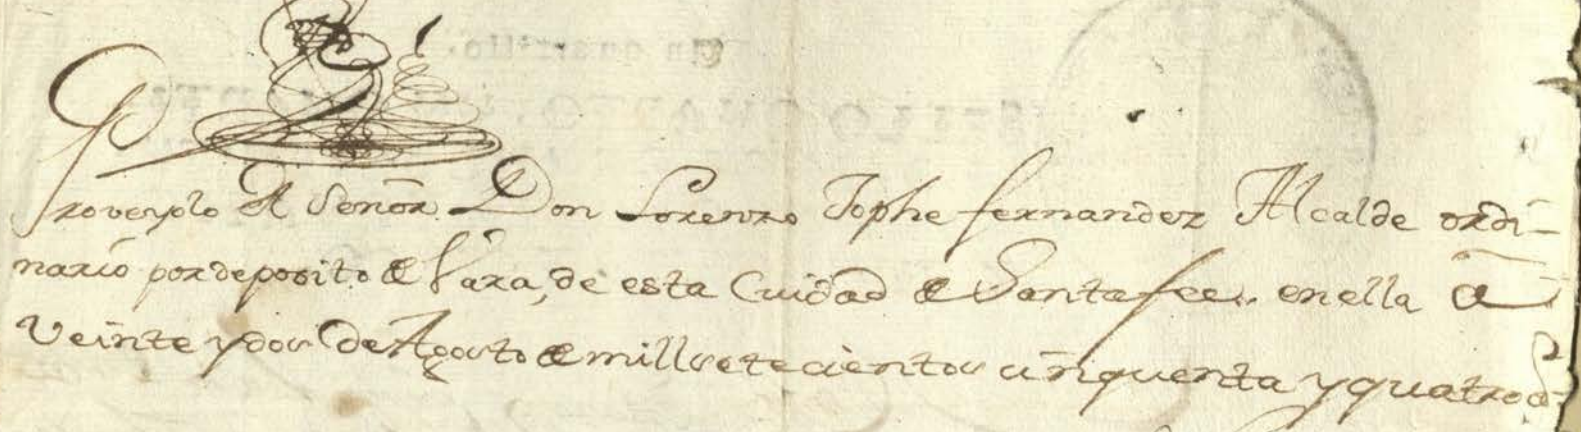 Proveyolo el Señor Don Lorenzo Jophe fernandez Alcalde ordi-
nario por deposito de Vara, de esta Cuidad de Santafee. en ella a
Veinte y dos de Agosto de mill setecientos cinquenta y quatro a.s